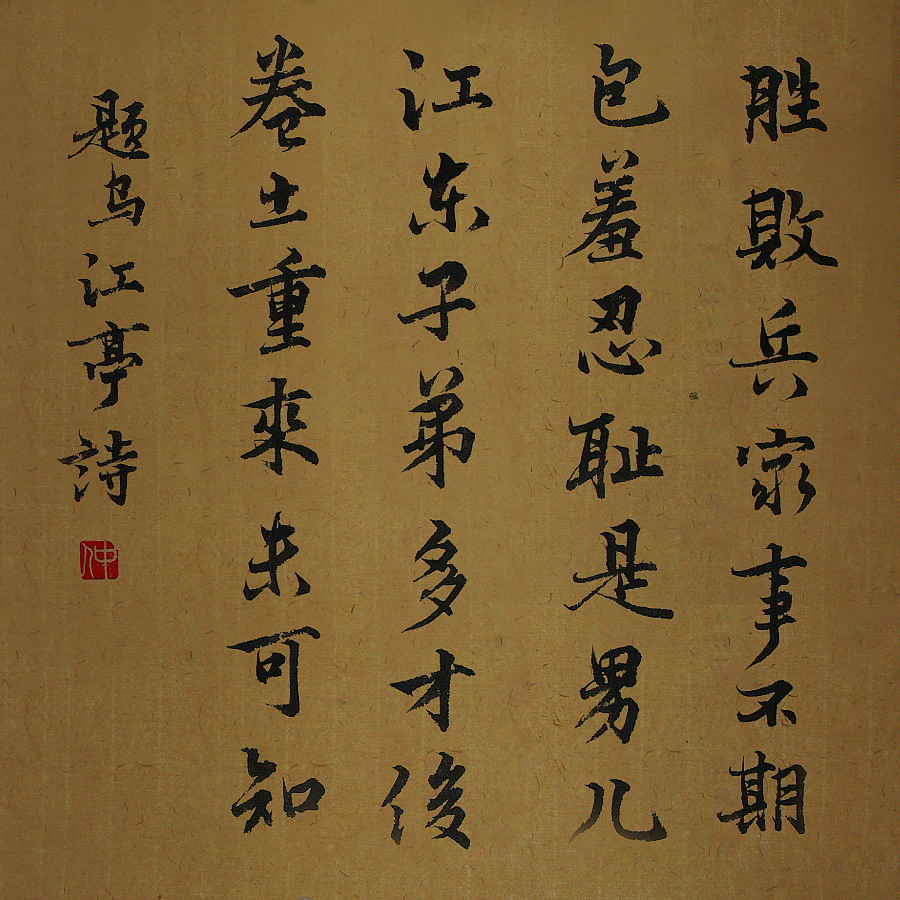 胜敗兵家事不期
包羞忍耻是男儿
江东子弟多才俊
卷土重來未可知
题乌江亭詩
仲